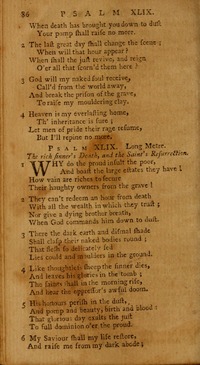 86 PSALM XLIX.
When death has brought you down to dust
Your pomp shall raise no more.
2 The last great day shall change the scene;
When will that hour appear?
When shall the just revive, and reign
O'er all that scorn'd them here?
3 God will my naked soul receive,
Call'd from the world away,
And break the prison of the grave,
To raise my mouldering clay.
4 Heaven is my everlasting home,
Th' inheritance is sure;
Let men of pride their rage resume,
But I'll repine no more.
PSALM XLIX. Long Meter.
The rich sinner's Death, and the Saint's Resurrection.
1 WHY do the proud insult the poor,
And boast the large estates they have!
How vain are riches to secure
Their haughty owners from the grave!
2 They can't redeem an hour from death
With all the wealth in which they trust;
Nor give a dying brother breath,
When God commands him down to dust.
3 There the dark earth and dismal shade
Shall clasp their naked bodies round;
That flesh so delicately fed
Lies cold and moulders in the ground.
4 Like thoughtless sheep the sinner dies,
And leaves his glories in the tomb;
The saints shall in the morning rise,
And hear the oppressor's awful doom.
5 His honours perish in the dust,
And pomp and beauty, birth and blood:
That glorious day exalts the just
To full dominion o'er the proud.
6 My Saviour shall my life restore,
And raise me from my dark abode;